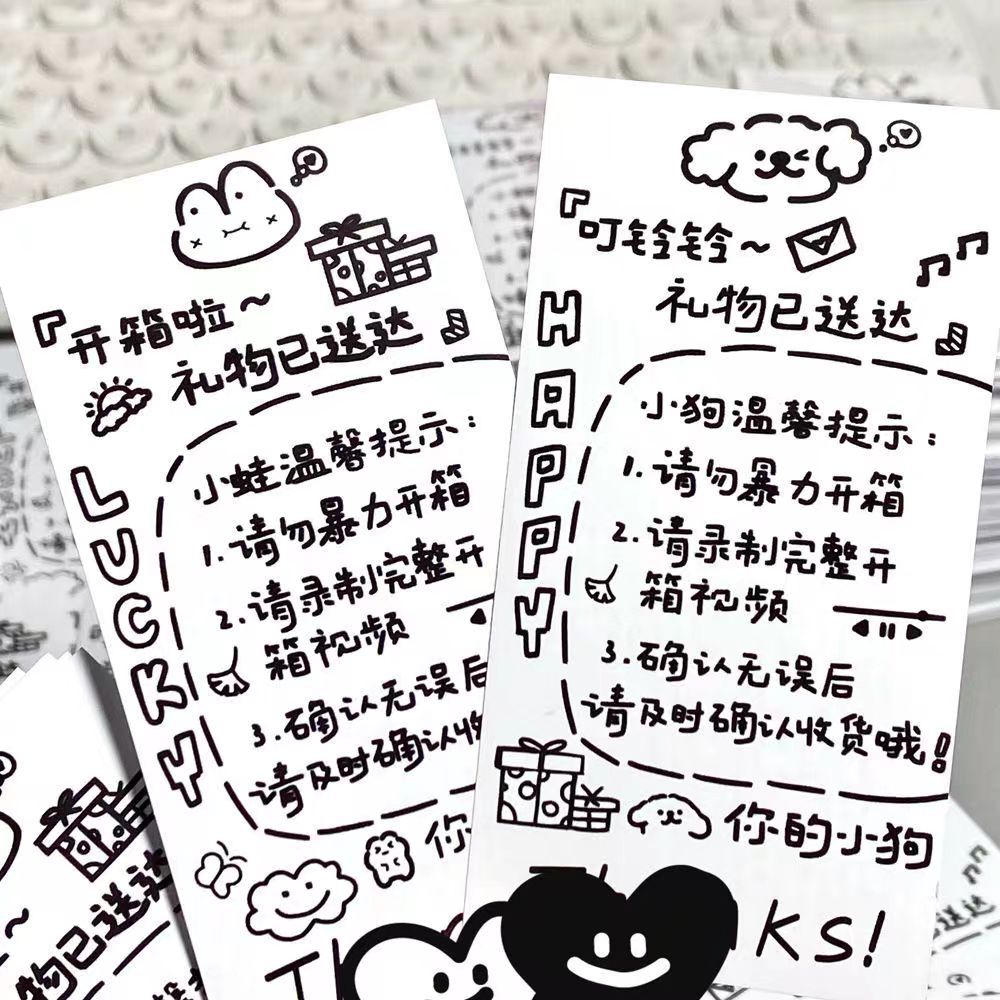 『开箱啦~
礼物已送达』
LUCKY
小蛙温馨提示：
1.请勿暴力开箱
2.请录制完整开
箱视频
3.确认无误后
请及时确认收
你
『叮铃铃~
礼物已送达』
HAPPY
小狗温馨提示：
1.请勿暴力开箱
2.请录制完整开
箱视频
3.确认无误后
请及时确认收货哦!
你的小狗
KS!
物已送达
送达